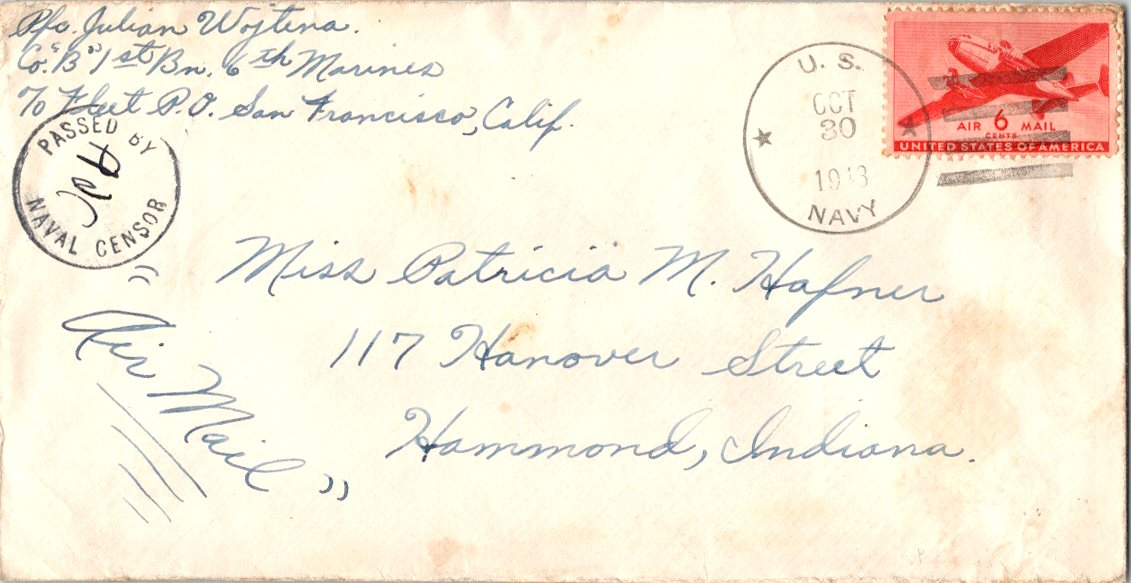 Pfc. Julian Wojtena.
Co. "B" 1st Bn. 6th Marines
c/o Fleet P.O. San Francisco, Calif.
PASSED BY
NAVAL CENSOR
U. S.
OCT
30
1943
NAVY
AIR 6 MAIL
CENTS
UNITED STATES OF AMERICA
Miss Patricia M. Hafner
117 Hanover Street
Hammond, Indiana.
"Air Mail"